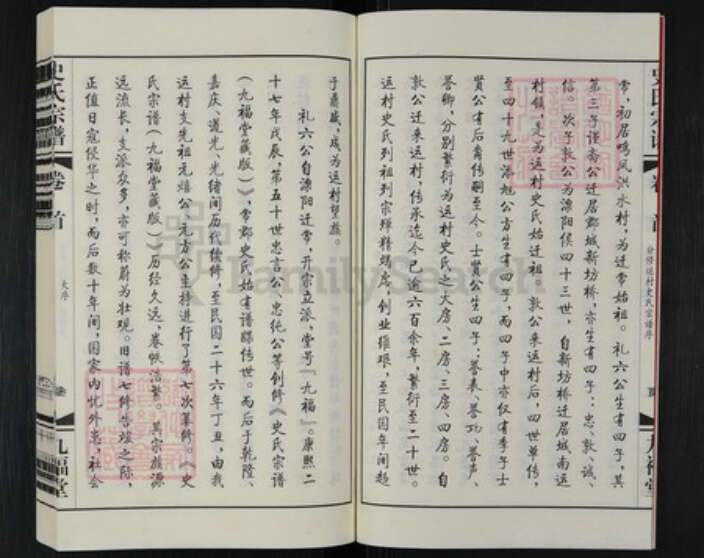 常，初居鸣凤洪水村，为迁常始祖。礼六公生有四子，其
第三子谨斋公迁居郡城新坊桥，亦生有四子：忠、敦、诚、
信。次子敦公为溧阳侯四十三世，自新坊桥迁居城南运
村镇，是为运村史氏始迁祖。敦公来运村后，四世单传，
至四十九世添旭公方生有四子，而四子中亦仅有季子士
贤公有后裔传嗣至今。士贤公生四子：誉表、誉功、誉声、
誉卿，分别繁衍为运村史氏之大房、二房、三房、四房。自
敦公迁来运村，传承迄今已逾六百余年，繁衍至二十世。
运村史氏列祖列宗殚精竭虑，创业维艰，至民国年间超
于鼎盛，成为运村望族。
礼六公自溧阳迁常，开宗立派，堂号「九福」。康熙二
十七年戊辰，第五十世忠言公、忠纯公等创修《史氏宗谱
（九福堂藏版）》，常郡史氏始有谱牒传世。而后于乾隆、
嘉庆、道光、光绪间历代续修，至民国二十六年丁丑，由我
运村支先祖元熺公、元方公主持进行了第七次纂修。《史
氏宗谱（九福堂藏版）》历经久远，卷帙浩繁。其宗族源
远流长，支派众多，亦可称蔚为壮观。旧谱七修告竣之际，
正值日寇侵华之时，而后数十年间，国家内忧外患，社会
史氏宗谱
卷首
分修运村史氏宗谱序
九福堂
史氏宗谱
卷首
大序
九福堂
FamilySearch